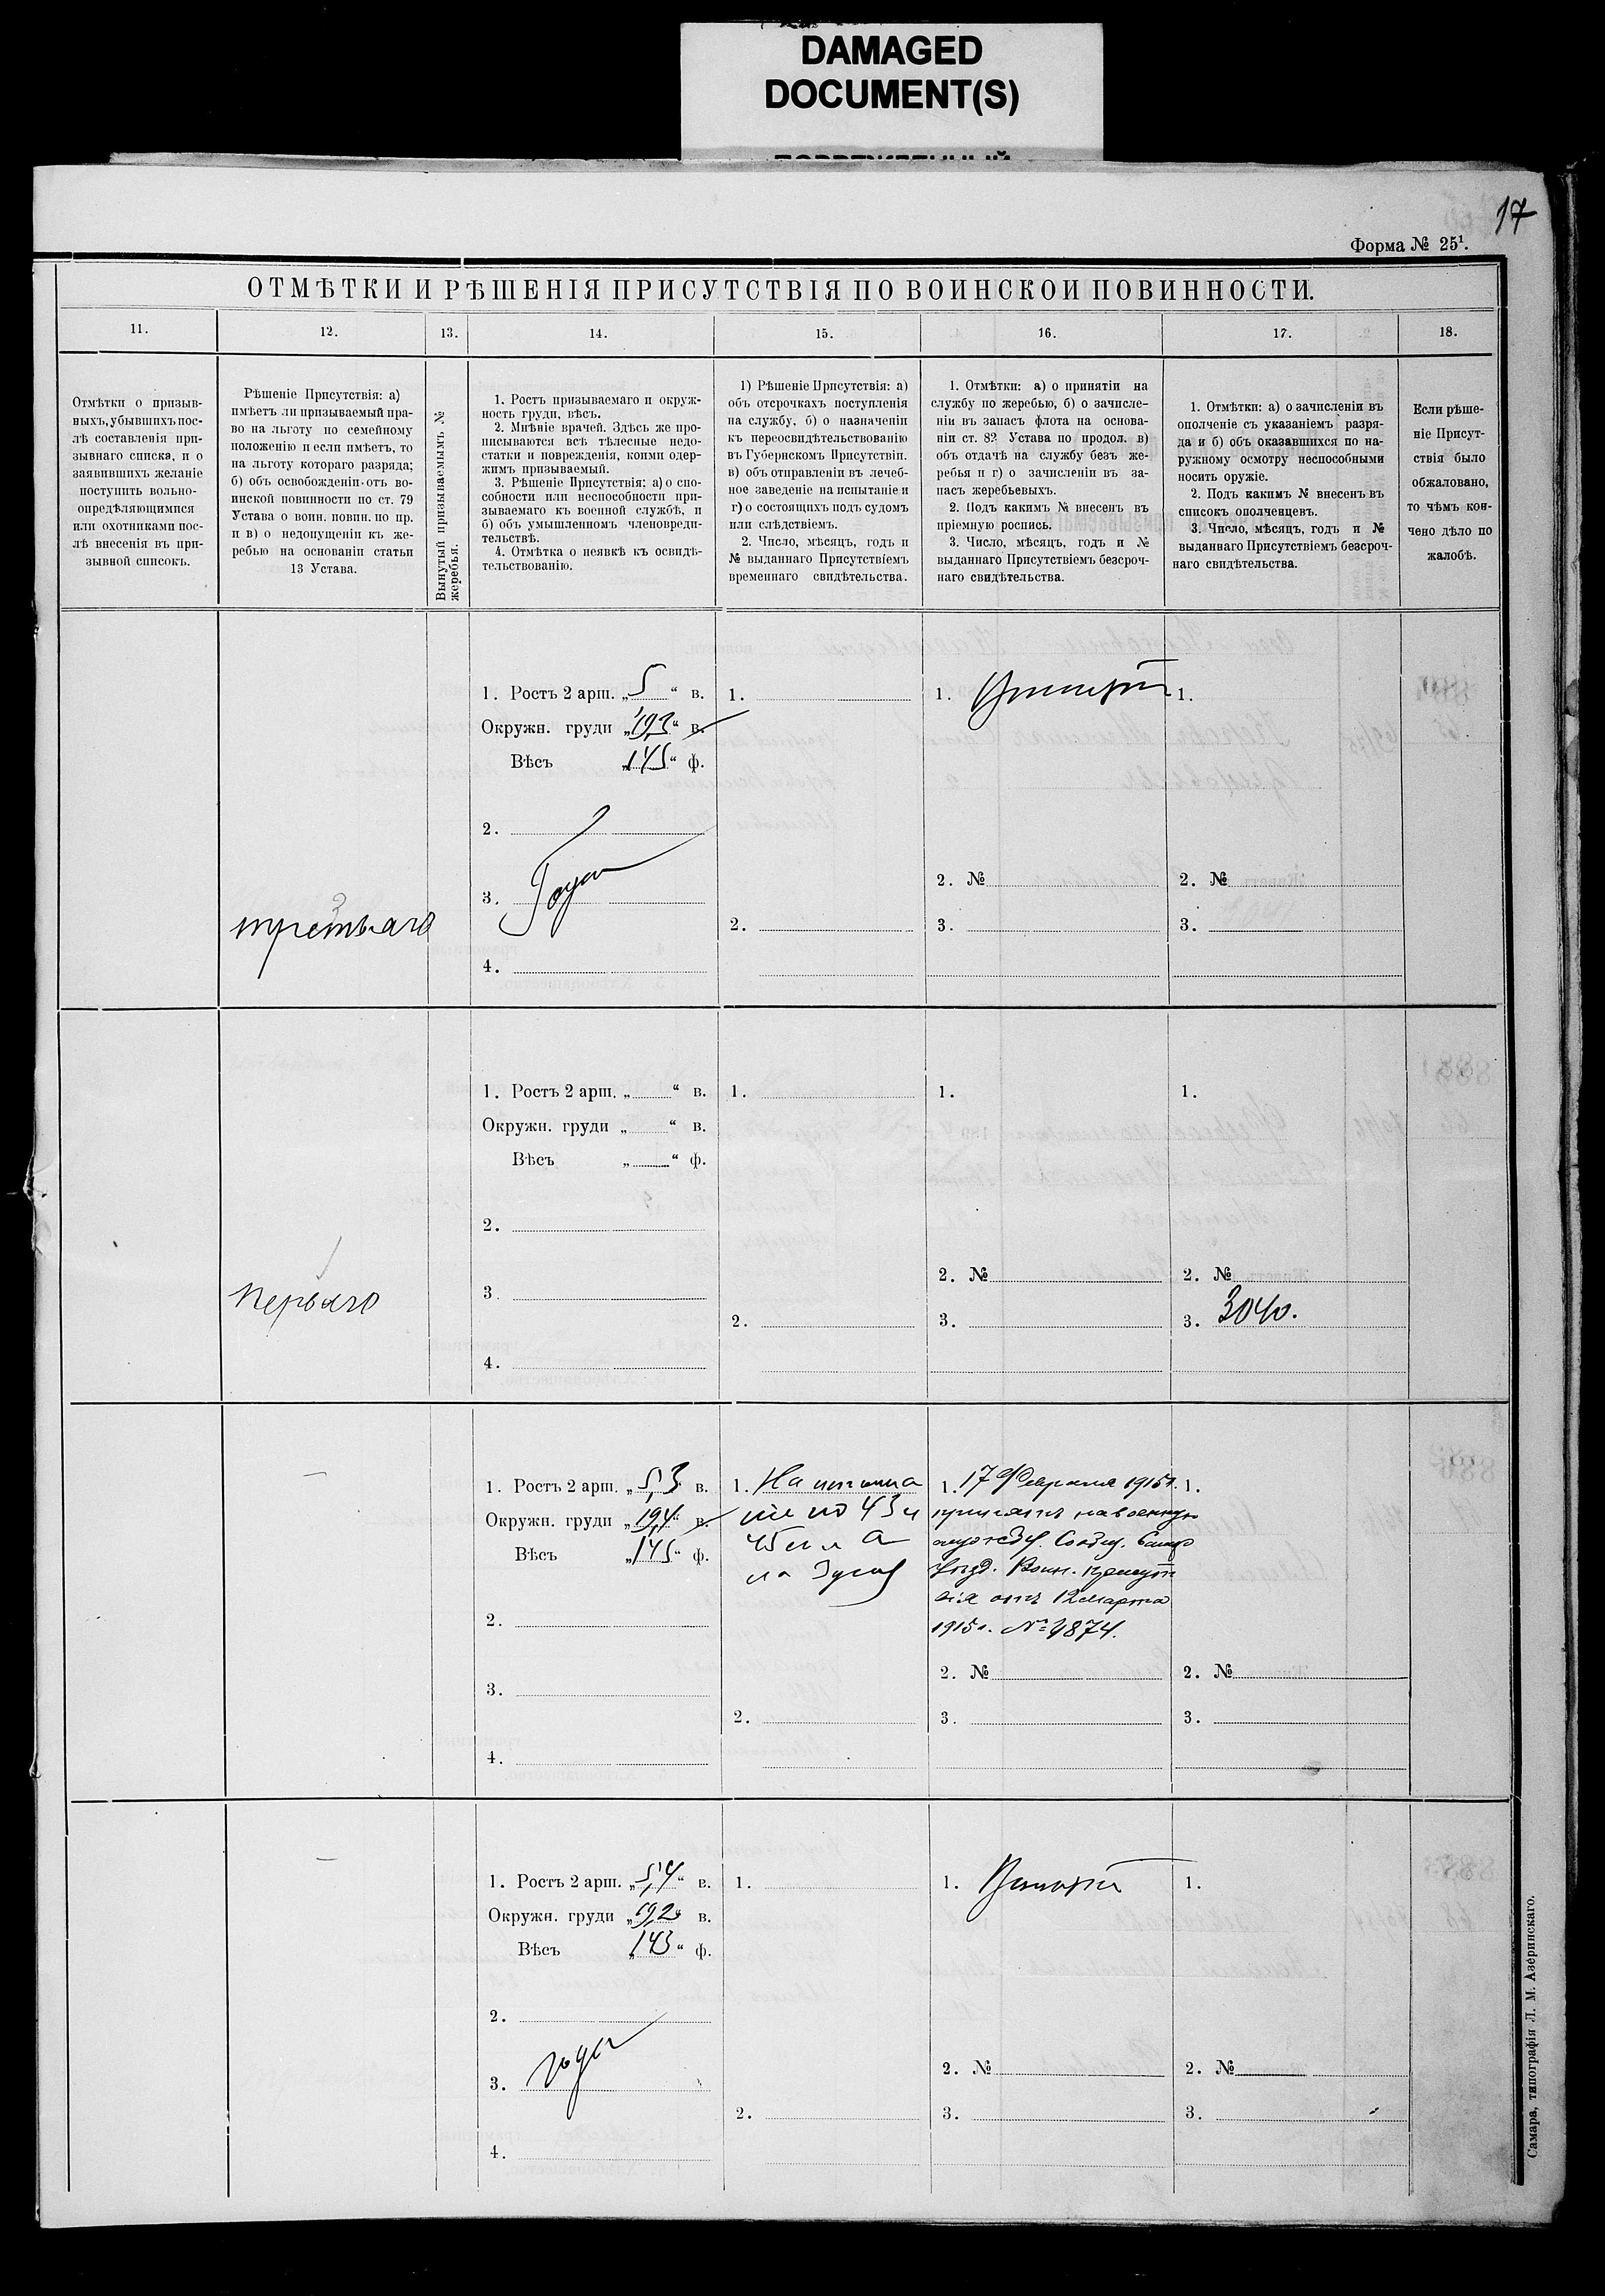 DAMAGED
DOCUMENT(S)
17
Форма № 25¹.
ОТМѢТКИ И РѢШЕНІЯ ПРИСУТСТВІЯ ПО ВОИНСКОЙ ПОВИННОСТИ.
11. 12. 13. 14. 15. 16. 17. 18.
Отмѣтки о призыв-
ныхъ, убывшихъ пос-
лѣ составленія при-
зывнаго списка, и о
заявившихъ желаніе
поступить вольно-
опредѣляющимися
или охотниками пос-
лѣ внесенія въ при-
зывной списокъ.
Рѣшеніе Присутствія: а)
имѣетъ ли призываемый пра-
во на льготу по семейному
положенію и если имѣетъ, то
на льготу котораго разряда;
б) объ освобожденіи отъ во-
инской повинности по ст. 79
Устава о воин. повин. по пр.
и в) о недопущеніи къ же-
ребью на основаніи статьи
13 Устава.
Вынутый призываемымъ №
жеребья.
1. Ростъ призываемаго и окруж-
ность груди, вѣсъ.
2. Мнѣніе врачей. Здѣсь же про-
писываются всѣ тѣлесные недо-
статки и поврежденія, коими одер-
жимъ призываемый.
3. Рѣшеніе Присутствія: а) о спо-
собности или неспособности при-
зываемаго къ военной службѣ, и
б) объ умышленномъ членовреди-
тельствѣ.
4. Отмѣтка о неявкѣ къ освидѣ-
тельствованію.
1) Рѣшеніе Присутствія: а)
объ отсрочкахъ поступленія
на службу, б) о назначеніи
къ переосвидѣтельствованію
въ Губернскомъ Присутствіи.
в) объ отправленіи въ лечеб-
ное заведеніе на испытаніе и
г) о состоящихъ подъ судомъ
или слѣдствіемъ.
2. Число, мѣсяцъ, годъ и
№ выданнаго Присутствіемъ
временнаго свидѣтельства.
1. Отмѣтки: а) о принятіи на
службу по жеребью, б) о зачисле-
ніи въ запасъ флота на основа-
ніи ст. 82 Устава по продол. в)
объ отдачѣ на службу безъ же-
ребья и г) о зачисленіи въ за-
пасъ жеребьевыхъ.
2. Подъ какимъ № внесенъ въ
пріемную роспись.
3. Число, мѣсяцъ, годъ и №
выданнаго Присутствіемъ безсроч-
наго свидѣтельства.
1. Отмѣтки: а) о зачисленіи въ
ополченіе съ указаніемъ разря-
да и б) объ оказавшихся по на-
ружному осмотру неспособными
носить оружіе.
2. Подъ какимъ № внесенъ въ
списокъ ополченцевъ.
3. Число, мѣсяцъ, годъ и №
выданнаго Присутствіемъ безсроч-
наго свидѣтельства.
Если рѣше-
ніе Присут-
ствія было
обжаловано,
то чѣмъ кон-
чено дѣло по
жалобѣ.
1. Ростъ 2 арш. „5“ в. 1. 1. Принятъ 1.
Окружн. груди „19,2“ в.
Вѣсъ „145“ ф.
2.
3. Годен
2. № 2. №
третьяго
2. 3. 3.
4.
1. Ростъ 2 арш. „ “ в. 1. 1. 1.
Окружн. груди „ “ в.
Вѣсъ „ “ ф.
2.
2. № 2. №
перваго
3.
2. 3. 3. 3040.
4.
1. Ростъ 2 арш. „5,3“ в. 1. На испыта 1. 17 февраля 1915г. 1.
Окружн. груди „19,4“ в. ніе по 43 и принятъ на военную
Вѣсъ „145“ ф. 45
Воин. присут
2. вія отъ 12 марта
1915г. № 4874.
2. № 2. №
3.
2. 3. 3.
4.
1. Ростъ 2 арш. „5,4“ в. 1. 1. Принятъ 1.
Окружн. груди „19,2“ в.
Вѣсъ „143“ ф.
2.
3. годен
2. № 2. №
2. 3. 3.
4.
Самара, типографія Л. М. Азеринскаго.